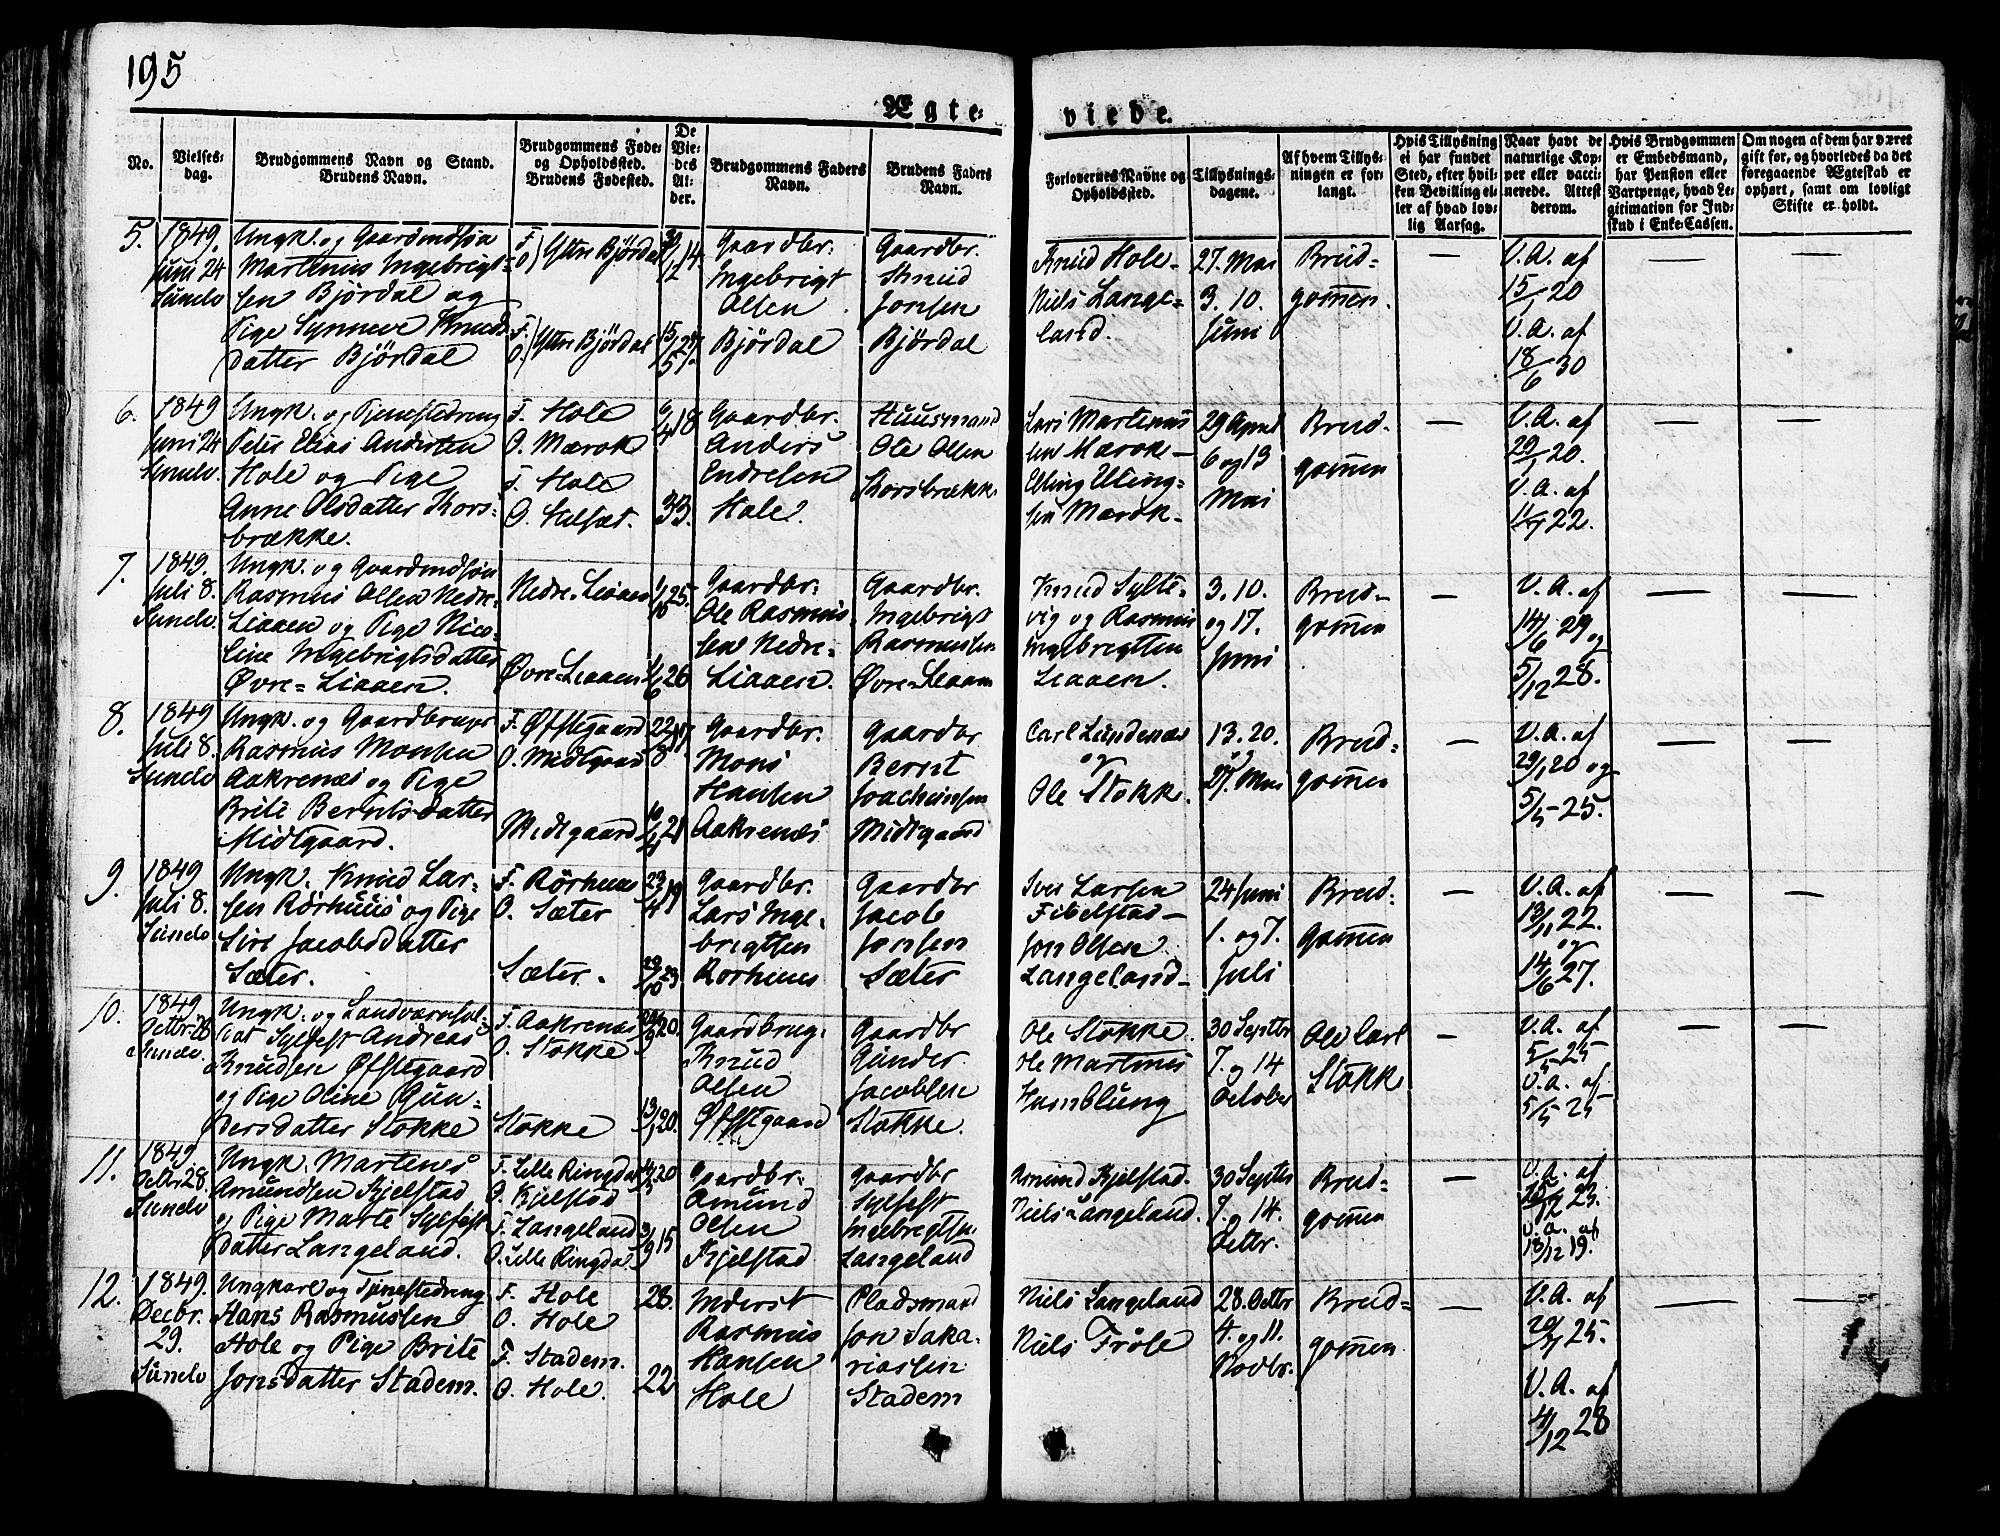 195
Ægte-
viede.
No.
Vielses-
dag.
Brudgommens Navn og Stand.
Brudens Navn.
Brudgommens Føde-
og Opholdssted.
Brudens Fødested.
De
Vie-
des
Al-
der.
Brudgommens Faders
Navn.
Brudens Faders
Navn.
Forlovernes Navne og
Opholdssted.
Tillysnings-
dagene.
Af hvem Tillys-
ningen er for-
langt.
Hvis Tillysning
ei har fundet
Sted, efter hvil-
ken Bevilling el-
ler af hvad lov-
lig Aarsag.
Naar havt de
naturlige Kop-
per eller vacci-
nerede. Attest
derom.
Hvis Brudgommen
er Embedsmand,
har Pension eller
Vartpenge, hvad Le-
gitimation for Ind-
skud i Enke-Cassen.
Om nogen af dem har været
gift før, og hvorledes da det
foregaaende Ægteskab er
ophørt, samt om lovligt
Skifte er holdt.
5.
1849.
Juni 24
Sunelv
Ungk. og Gaardmdsøn
Martinus Ingebrigt-
sen Bjørdal og
Pige Synneve Knuds
datter Bjørdal
F. O. Ytre Bjørdal
F. O. Ytre Bjørdal
Gaardbr.
Ingebrigt
Olsen
Bjørdal
Gaardbr.
Knud
Jonsen
Bjørdal
Knud Hole-
Niels Lange-
land.
27. Mai
3. 10.
Juni
Brud-
gommen.
V. A. af
15/ 20
V. A. af
18/6 30
6.
1849
Juni 24
Sunelv.
Ungk. og Tjenestedreng
Peter Elias Andersen
Hole og Pige
Anne Olsdatter Kors-
brække.
F. Hole
O. Marok
F. Hole
O.
6/4 18
33.
Gaardbr.
Anders
Endresen
Hole.
Huusmand
Ole Olsen
Korsbrække
Lars Martinus
sen Marok-
Elling Elling-
sen Marok-
29 April
6 og 13
Mai
Brud-
gommen
V. A. af
29/1 20.
V. A. af
22.
7.
1849.
Juli 8.
Sunelv.
Ungk. og Gaardmdsøn
Rasmus Olsen Nedre-
Liaaen og Pige Nico-
line Ingebrigtsdatter
Øvre-Liaaen.
Nedre-Liaaen
Øvre-Liaaen
1/10 25.
1/6 26
Gaardbr.
Ole Rasmus
sen Nedre-
Liaaen.
Gaardbr.
Ingebrigt
Rasmussen
Øvre-Liaaen
Knud Sylte-
vig og Rasmus
Ingebrigtsen
Liaaen.
3. 10.
og 17.
Juni
Brud-
gommen
V. A. af
14/6 29 og
5/12 28.
8.
1849
Juli 8.
Sunelv
Ungk. og Gaardbruger
Rasmus Monsen
Aakrenæs og Pige
Brite Berntsdatter
Midtgaard.
F. Øfstegaard
O. Midtgaard
Midtgaard
Gaardbr.
Mons
Hansen
Aakrenæs
Gaardbr
Bernt
Joachimsen
Midtgaard
Carl Lundenæs
og
Ole Stokke.
13. 20.
27. Mai
Brud-
gommen
V. A. af
29/1 20 og
5/5 25.
9.
1849
Juli 8.
Sunelv
Ungk. Knud Lar-
sen Rørhuus og Pige
Siri Jacobsdatter
Sæter.
F. Rørhuus
O. Sæter
Sæter.
23/4 19
29/10 23
Gaardbr.
Lars Inge-
brigtsen
Rørhuus
Gaardbr
Jacob
Jonsen
Sæter
Iver Larsen
Fibelstad-
Jon Olsen
Langeland-
24 Juni
1. og 7.
Juli
Brud-
gommen
V. A. af
13/11 22.
og
14/6 27.
10.
1849
Octbr. 28
Sunelv.
Ungk. og Landværnsol-
dat Sylfest Andreas
Knudsen Øfstegaard
og Pige Oline Gun-
dersdatter Stokke
F. Aakrenæs
O. Stokke
Stokke
13/1 20.
Gaardbrug.
Knud
Olsen
Øfstegaard
Gaardbr
Gunder
Jacobsen
Stokke.
Ole Stokke.
Ole Martinus
Humblung
30 Septbr
7. og 14
October
Ole Carl
Stokke
V. A. af
5/5 25
V. A. af.
5/5 25
11.
1849
Octbr 28.
Sunelv
Ungk. Martines
Amundsen Kjelstad
og Pige Marte Sylfest
datter Langeland.
F. Lille Ringdal
O. Kjelstad
F. Langeland
O. Lille Ringdal
Gaardbr.
Amund
Olsen
Kjelstad
Gaardbr
Sylfest
Ingebrigtsn.
Langeland
Amund Kjelstad.
Niels Langeland.
30 Septbr
7. og 14.
Octbr.
Brud-
gommen
V. A. af
23.
V. A. af
18/12 19.
12.
1849.
Decbr.
29.
Sunelv
Ungkarl og Tjenestedreng
Hans Rasmussen
Hole og Pige Brite
Jonsdatter Stadem.
F. Hole
O. Hole
F. Stadem.
O. Hole.
28.
22
Inderst
Rasmus
Hansen
Hole
Pladsmand
Jon Saka-
riassen
Stadem
Niels Langeland
Niels Frøle
28. Octbr
4. og 11.
Novbr.
Brud-
gommen
V. A. af
25.
V. A. af
4/12 28